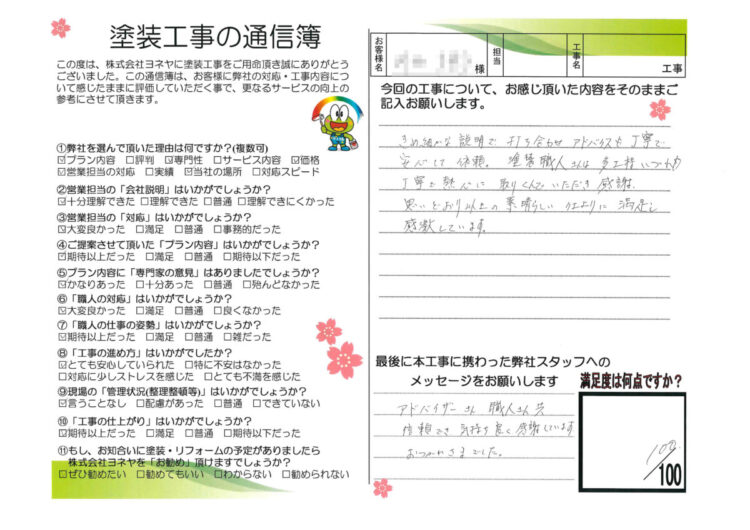 塗装工事の通信簿
この度は、株式会社ヨネヤに塗装工事をご用命頂き誠にありがとう
ございました。この通信簿は、お客様に弊社の対応・工事内容につ
いて感じたままに評価していただく事で、更なるサービスの向上の
参考にさせて頂きます。
①弊社を選んで頂いた理由は何ですか?(複数可)
☑プラン内容 □評判 ☑専門性 □サービス内容 ☑価格
☑営業担当の対応 □実績 ☑当社の場所 □対応スピード
②営業担当の「会社説明」はいかがでしょうか?
☑十分理解できた □理解できた □普通 □理解できにくかった
③営業担当の「対応」はいかがでしょうか?
☑大変良かった □満足 □普通 □事務的だった
④ご提案させて頂いた「プラン内容」はいかがでしょうか?
☑期待以上だった □満足 □普通 □期待以下だった
⑤プラン内容に「専門家の意見」はありましたでしょうか?
☑かなりあった □十分あった □普通 □殆んどなかった
⑥「職人の対応」はいかがでしょうか?
☑大変良かった □満足 □普通 □良くなかった
⑦「職人の仕事の姿勢」はいかがでしょうか?
☑期待以上だった □満足 □普通 □雑だった
⑧「工事の進め方」はいかがでしたか?
☑とても安心していられた □特に不安はなかった
□対応に少しストレスを感じた □とても不満を感じた
⑨現場の「管理状況(整理整頓等)」はいかがでしょうか?
☑言うことなし □配慮があった □普通 □できていない
⑩「工事の仕上がり」はいかがでしょうか?
☑期待以上だった □満足 □普通 □期待以下だった
⑪もし、お知合いに塗装・リフォームの予定がありましたら
株式会社ヨネヤを「お勧め」頂けますでしょうか?
□ぜひ勧めたい □勧めてもいい □わからない □勧められない
お客様名 様 担当 工事名 工事
今回の工事について、お感じ頂いた内容をそのままご
記入お願いします。
きめ細かな説明で打ち合わせアドバイスも丁寧で
安心して依頼。塗装職人さんは多工程いつも
丁寧に熱心に取りくんでいただき感謝。
思いどおり以上の素晴らしい仕上りに満足し
感激しています。
最後に本工事に携わった弊社スタッフへの
メッセージをお願いします
アドバイザーさん 職人さん共
信頼でき気持ち良く感謝しています
おつかれさまでした。
満足度は何点ですか?
100
/100